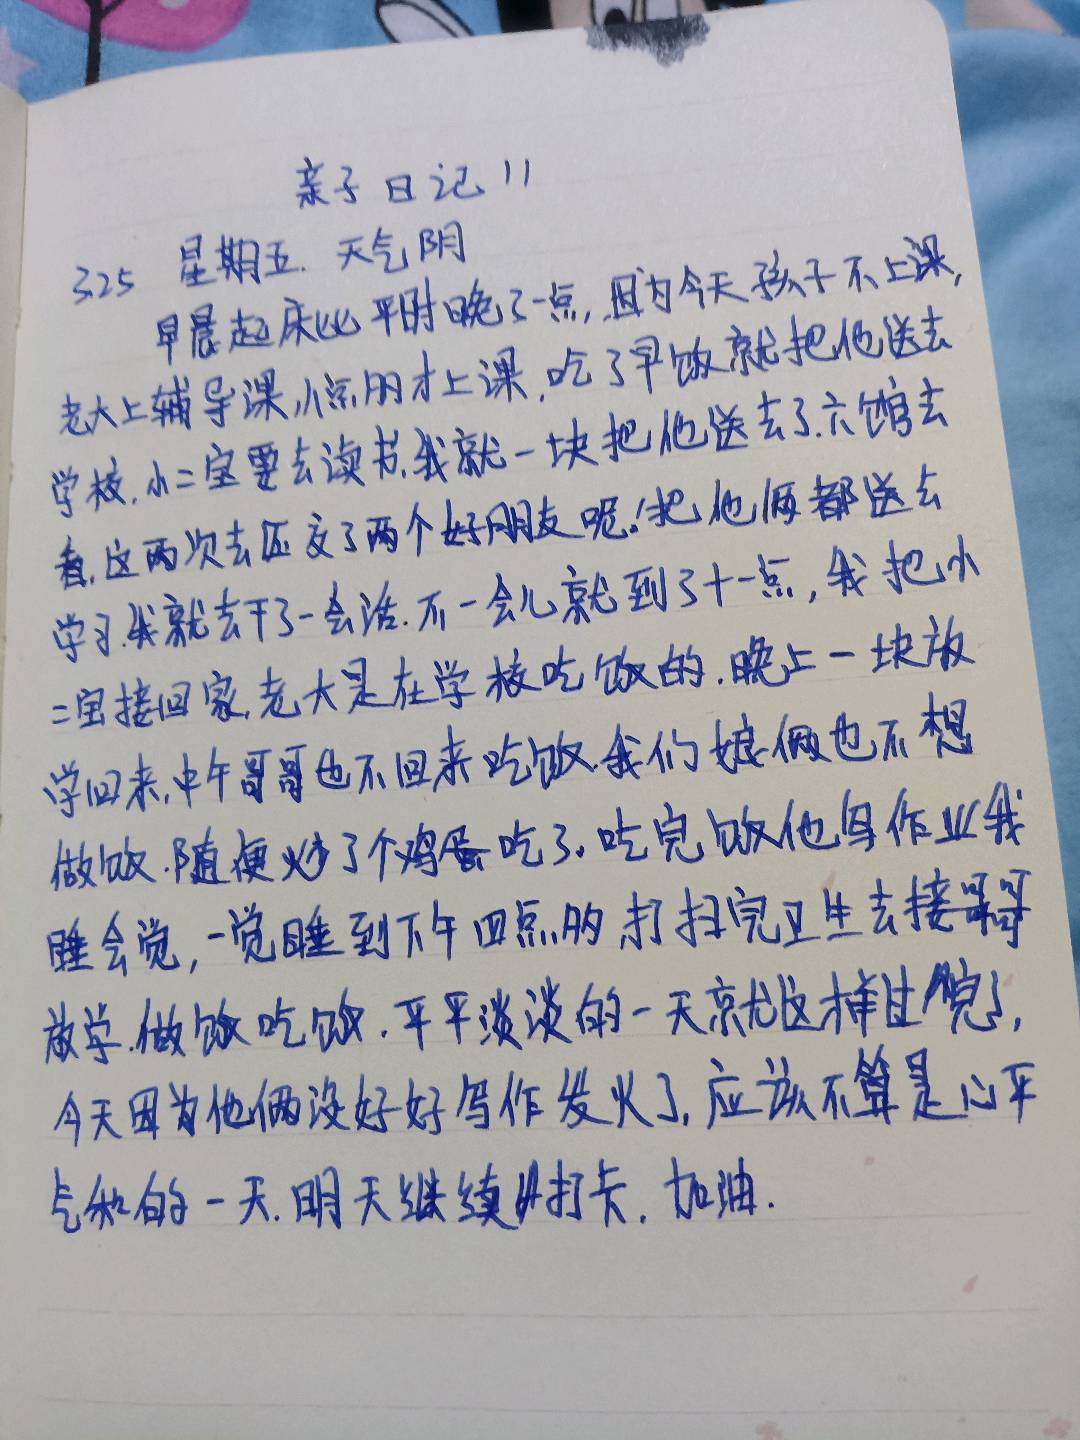 亲子日记 11
3.25 星期五. 天气阴
早晨起床比平时晚了一点,因为今天孩子不上课,
老大上辅导课,八点的才上课,吃了早饭就把他送去
学校,小二宝要去读书,我就一块把他送去了.六馆去
看,这两次去还交了两个好朋友呢!把他俩都送去
学习.我就去干了一会活.不一会儿就到了十一点,我把小
二宝接回家,老大是在学校吃饭的,晚上一块放
学回来,中午哥哥也不回来吃饭.我们娘俩也不想
做饭.随便炒了个鸡蛋吃了。吃完饭他写作业我
睡会觉,一觉睡到下午四点的,打扫完卫生去接哥哥
放学.做饭吃饭.平平淡淡的一天就这样过完了,
今天因为他俩没好好写作发火了,应该不算是心平
气和的一天.明天继续打卡.加油.